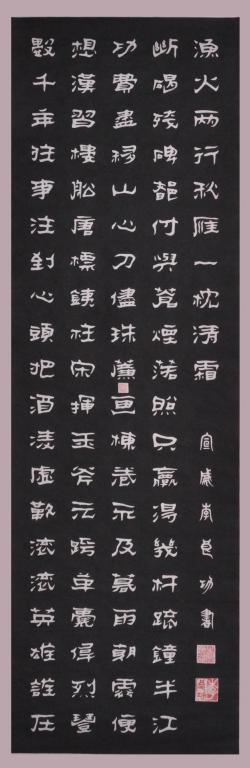 數千年往事注到心頭把酒凌虛歎滾滾英雄誰在
想漢習樓船唐標鐵柱宋揮玉斧元跨革囊偉烈豐
功費盡移山心力儘珠簾畫棟卷不及暮雨朝雲便
斷碣殘碑都付與蒼煙落照只贏得幾杵疏鐘半江
漁火兩行秋雁一枕清霜
宣威李功書